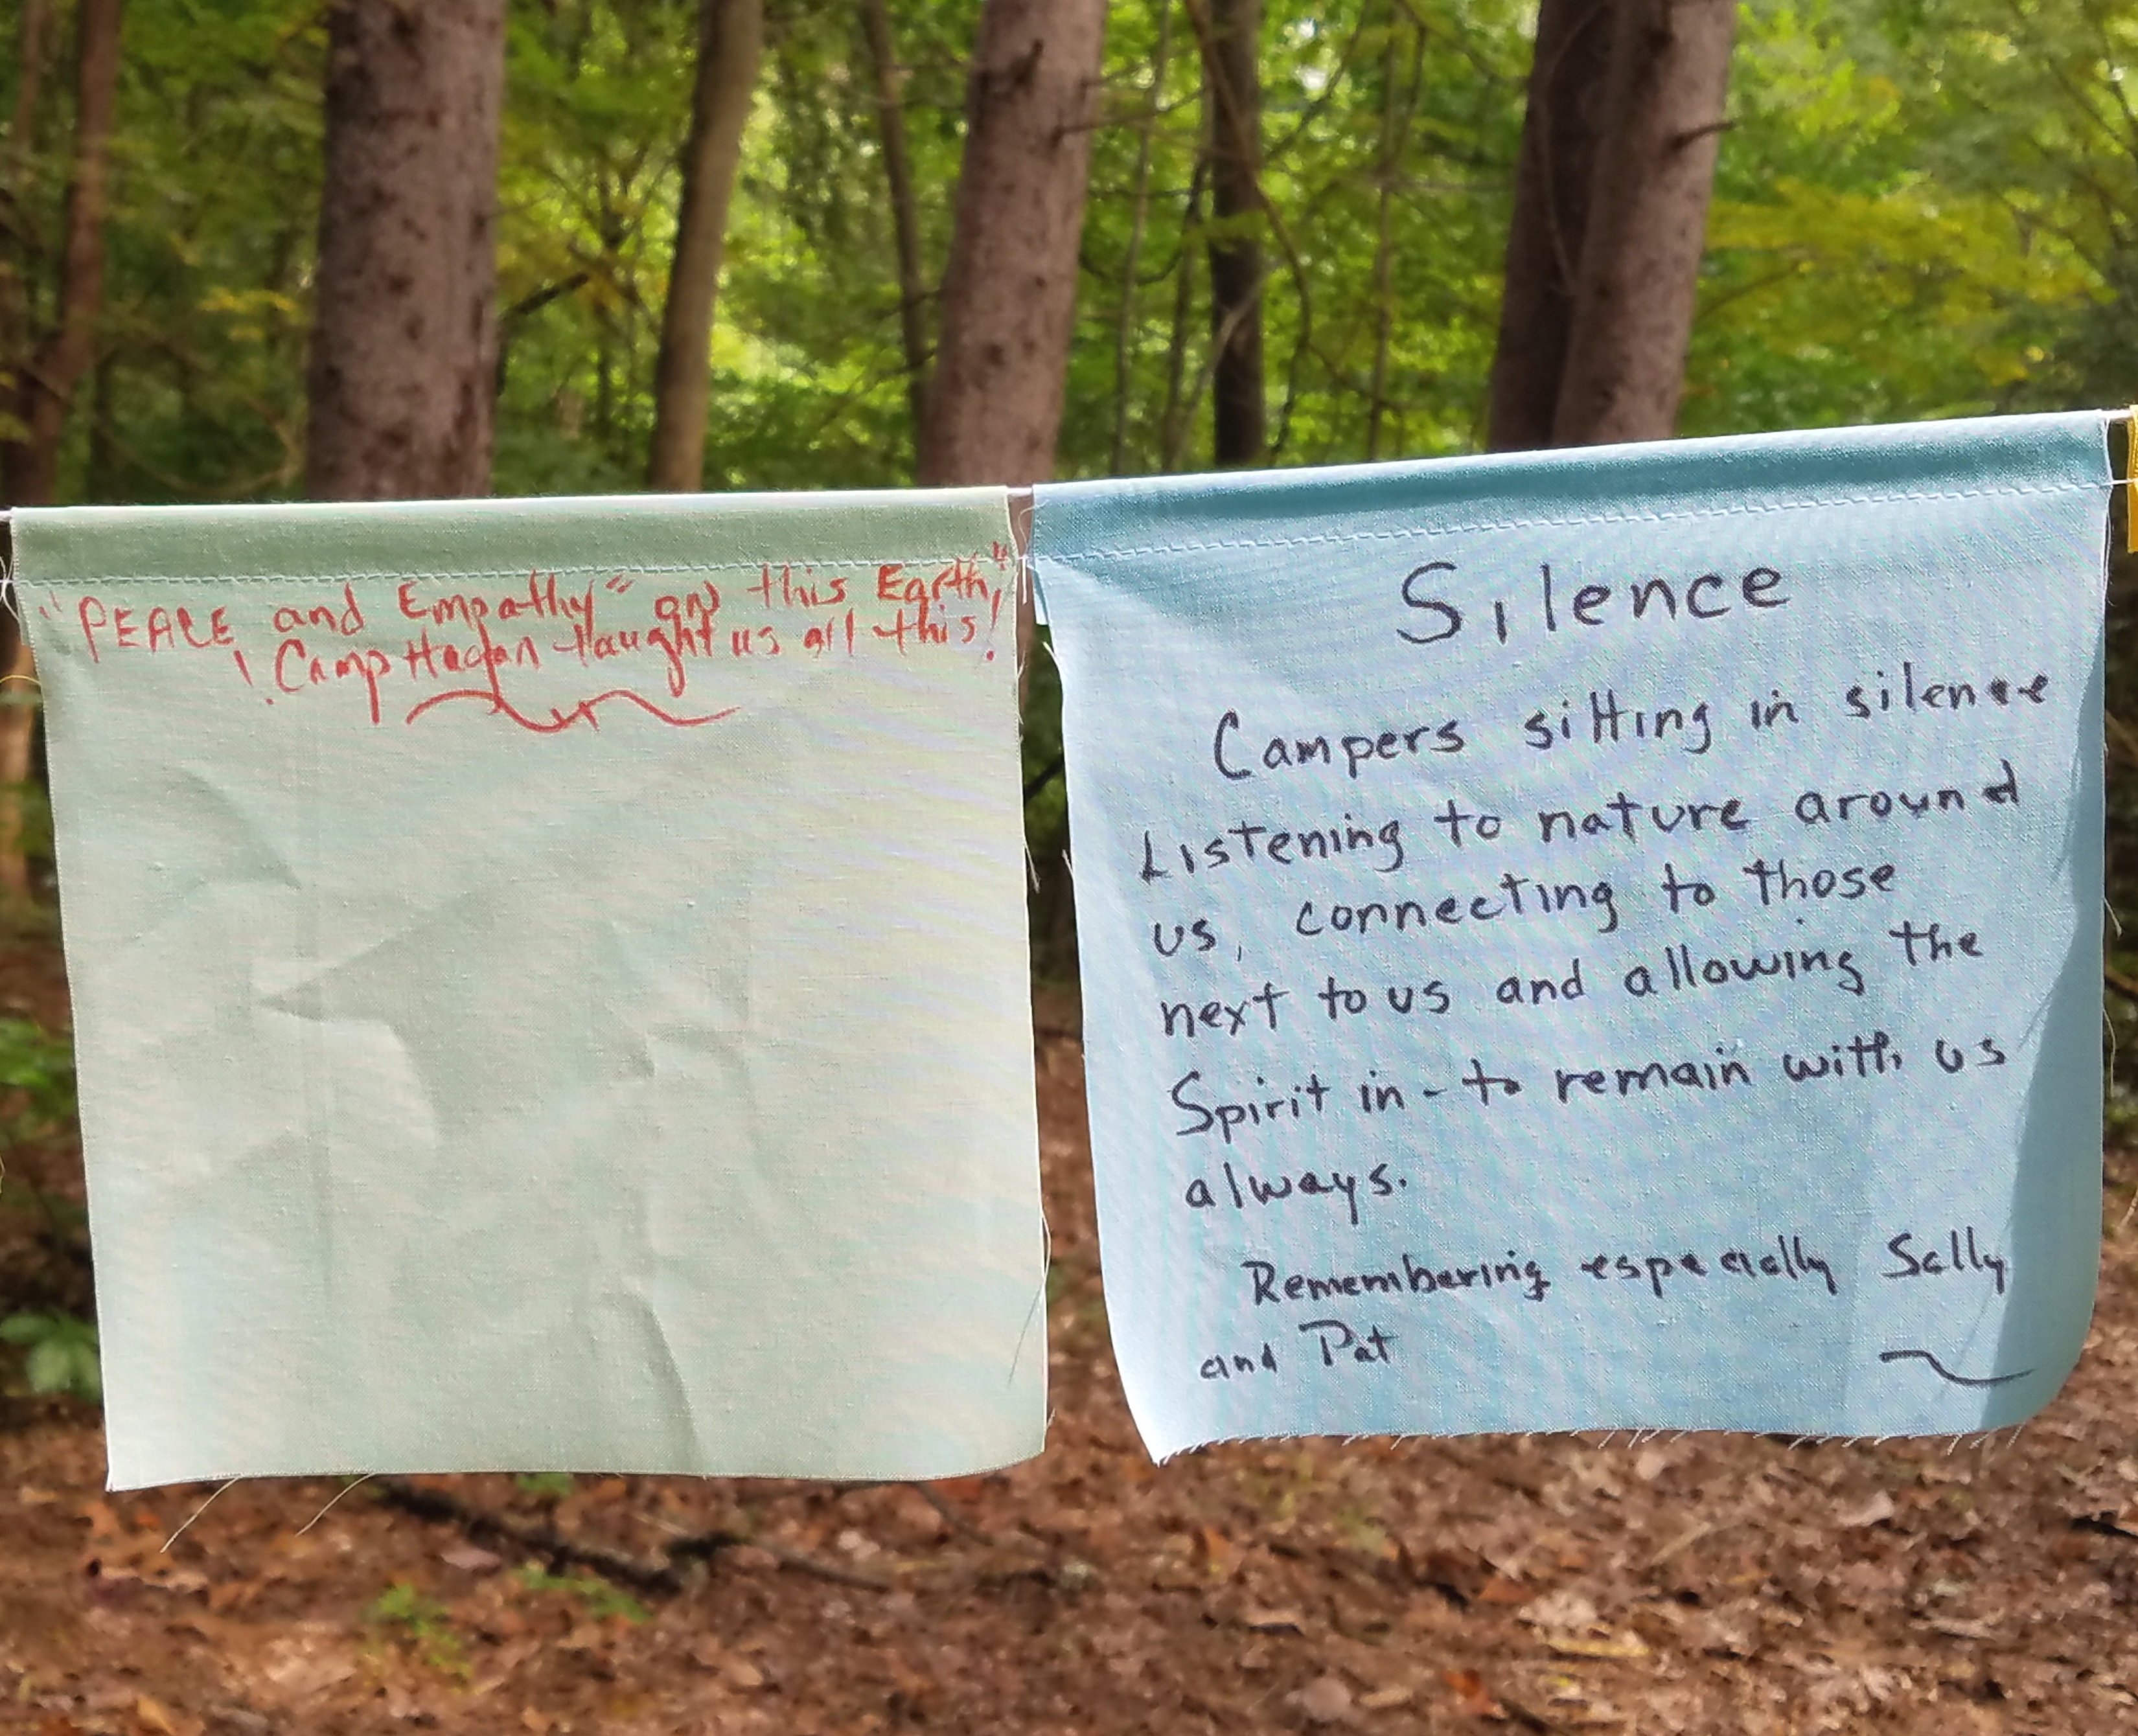 "PEACE and Empathy" on this Earth,"
! Camp Hagan taught us all this!
Silence
Campers sitting in silence
Listening to nature around
us, connecting to those
next to us and allowing the
Spirit in - to remain with us
always.
Remembering especially Sally
and Pat